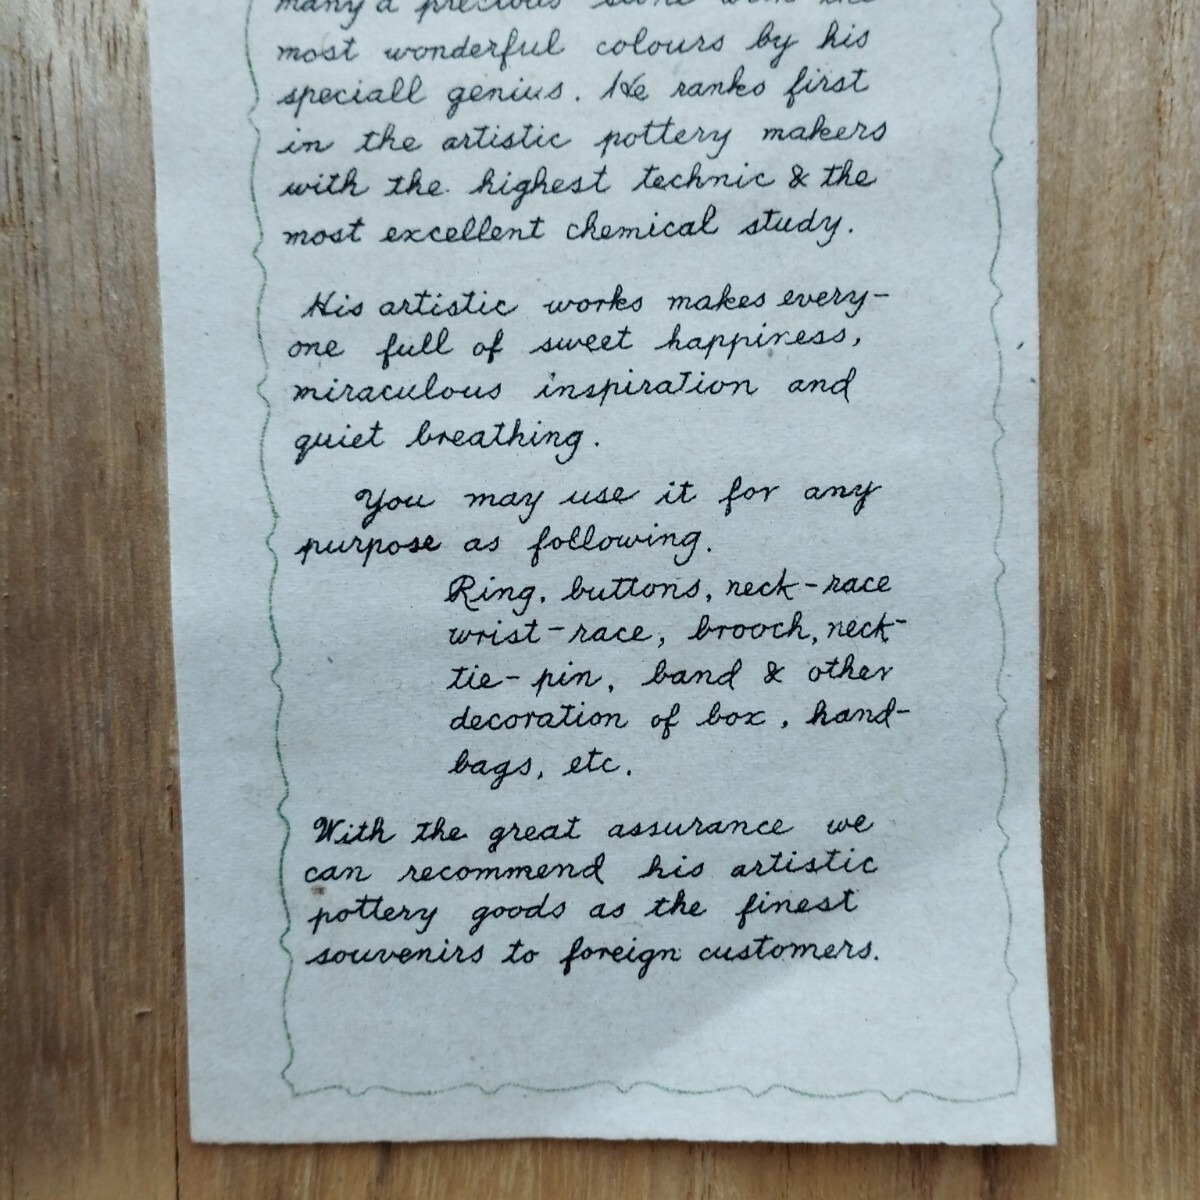 many a precious stone with the
most wonderful colours by his
speciall genius. He ranks first
in the artistic pottery makers
with the highest technic & the
most excellent chemical study.
His artistic works makes every-
one full of sweet happiness,
miraculous inspiration and
quiet breathing.
You may use it for any
purpose as following.
Ring, buttons, neck-race
wrist-race, brooch, neck-
tie-pin, band & other
decoration of box, hand-
bags, etc.
With the great assurance we
can recommend his artistic
pottery goods as the finest
souvenirs to foreign customers.